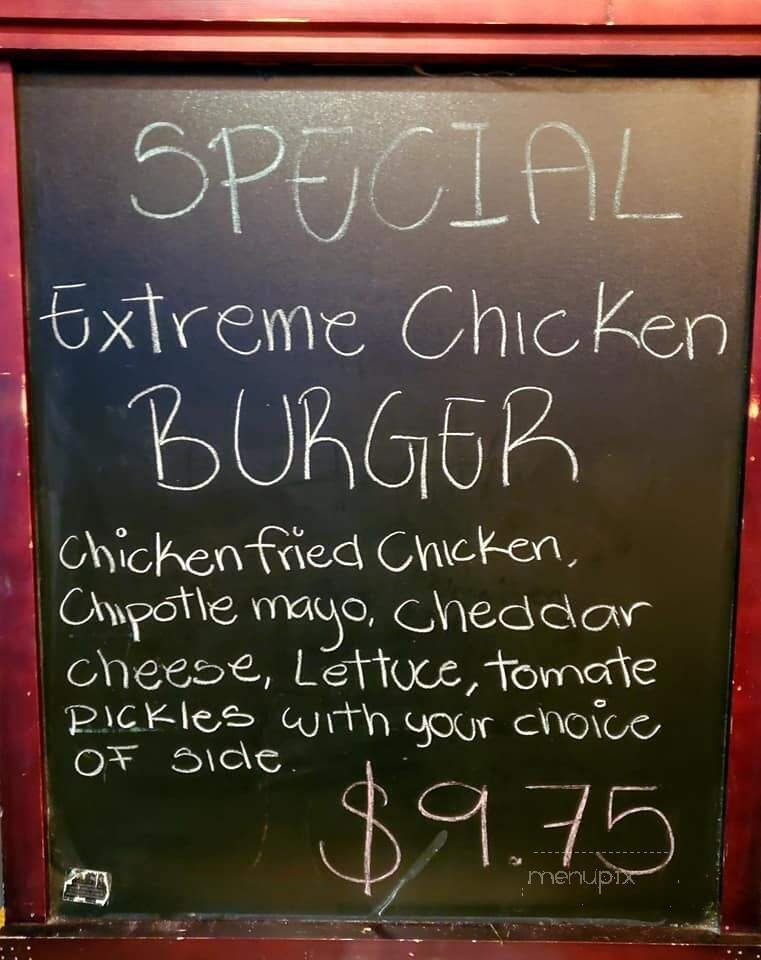 SPECIAL
Extreme Chicken
BURGER
Chicken fried Chicken,
Chipotle mayo, cheddar
cheese, Lettuce, tomate
PICKLES with your choice
OF side.
$9.75
menupix